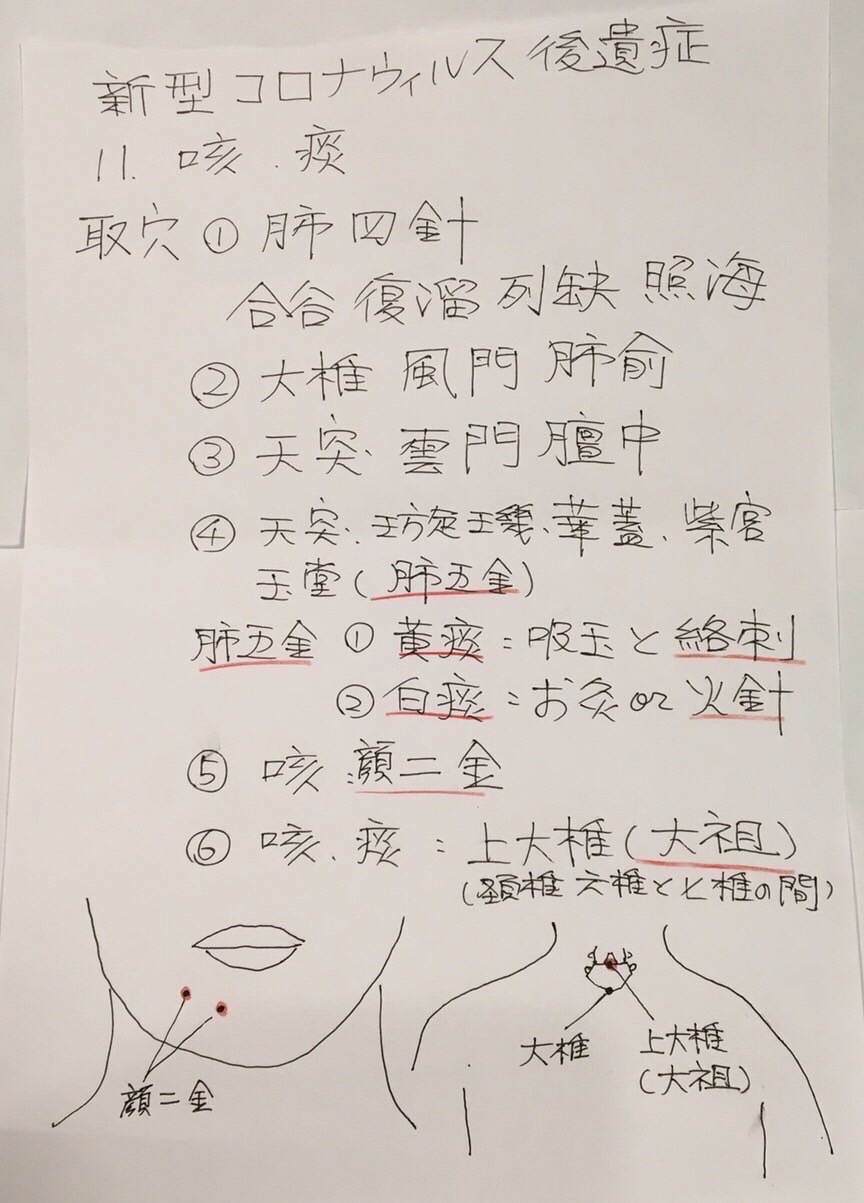 新型コロナウィルス 後遺症
11. 咳．痰
取穴 ① 肺四針
合谷 復溜 列缺 照海
② 大椎 風門 肺俞
③ 天突. 雲門 膻中
④ 天突. 璇璣、華蓋、紫宮
玉堂 (肺五金)
肺五金 ① 黄痰：吸玉と絡刺
② 白痰：お灸 or 火針
⑤ 咳：顔二金
⑥ 咳．痰：上大椎 (大祖)
(頚椎 六椎と七椎の間)
顔二金
大椎
上大椎
(大祖)